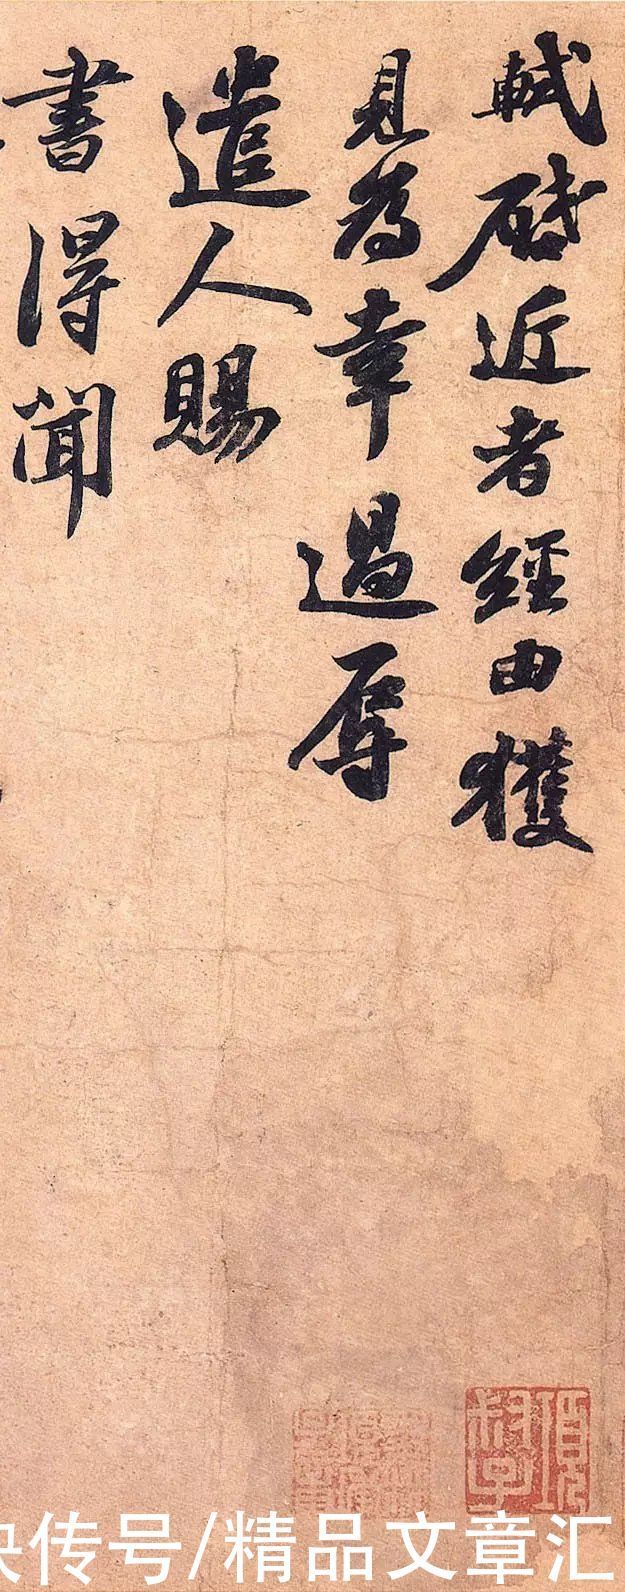 軾啟近者經由獲
見為幸過辱
遣人賜
書得聞
传号/精品文章汇